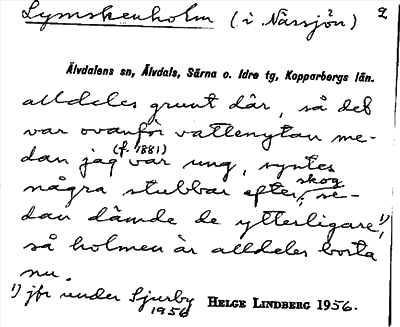 Lymskenholm (i Nässjön) 2
Älvdalens sn, Älvdals, Särna o. Idre tg, Kopparbergs län.
alldeles grunt där, så det
var ovanför vattenytan me-
(f. 1881)
dan jag var ung, syntes
skog
några stubbar efter, se-
dan dämde de ytterligare ¹),
så holmen är alldeles borta
nu.
¹) jfr under Sjurby HELGE LINDBERG 1956.
1956